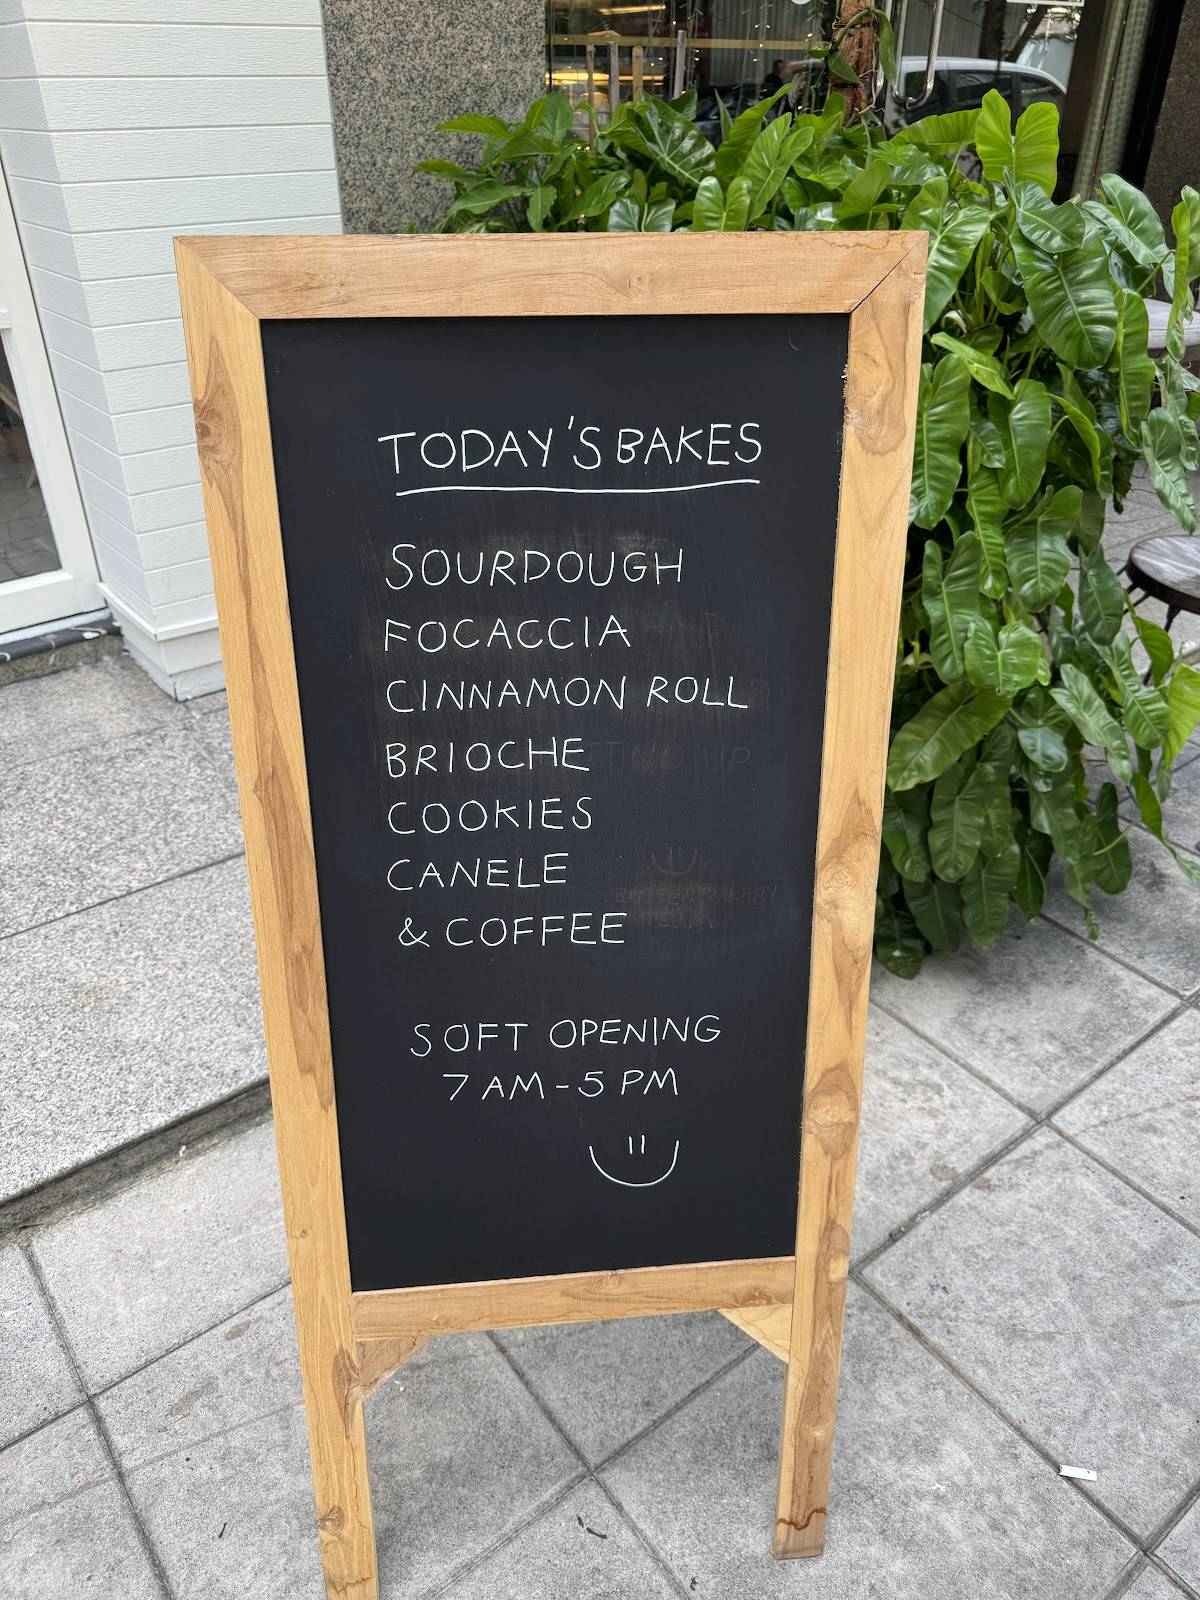 TODAY'S BAKES
SOURDOUGH
FOCACCIA
CINNAMON ROLL
BRIOCHE
COOKIES
CANELE
& COFFEE
SOFT OPENING
7 AM - 5 PM